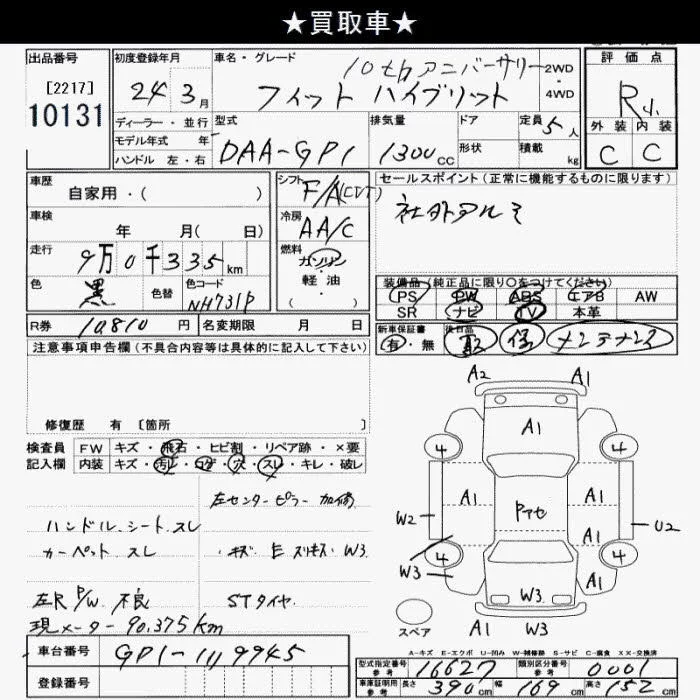 ★買取車★
出品番号
[2217]
10131
初度登録年月
24年 3月
車名・グレード
10thアニバーサリー
フィット ハイブリット
2WD
・
4WD
評価点
R小
外装 内装
C C
ディーラー・並行
モデル年式 年
ハンドル 左・右
型式
DAA-GP1
排気量
1300cc
ドア
形状
定員 5人
積載 kg
車歴
自家用・( )
シフト
F/A(CVT)
セールスポイント(正常に機能するものに限ります)
社外アルミ
車検
年 月( 日)
冷房
AA/C
走行
9万0千335km
燃料
ガソリン
・
軽油
・( )
色
黒
色替
色コード
NH731P
装備品(純正品に限り○をつけてください)
PS PW ABS エアB AW
SR ナビ TV 本革
R券 10810円
名変期限 月 日
新車保証書
有・無
後日品
取 保 メンテナンス
注意事項申告欄(不具合内容等は具体的に記入して下さい)
修復歴 有 [箇所
検査員
記入欄
FW キズ・飛石・ヒビ割・リペア跡・×要
内装 キズ・汚レ・コゲ・穴・スレ・キレ・破レ
左センターピラー 加修
ハンドル.シート.スレ
カーペット.スレ
・キズ E スリキズ W3
左R P/W 不良
STタイヤ
現メーター 90.375km
A2 A1
A1
4 4
A1 Pアセ A1
W2 A1 U2
W3 4 4
A1 A1
W3
スペア
A1 U1 W3
A-キズ E-エクボ U-凹み W-補修跡 S-サビ C-腐食 XX-交換済
車台番号
GP1-1119945
登録番号
型式指定番号
参考
16627
類別区分番号
参考
0001
車庫証明用
参考
長さ 390cm 幅 169cm 高さ 152cm